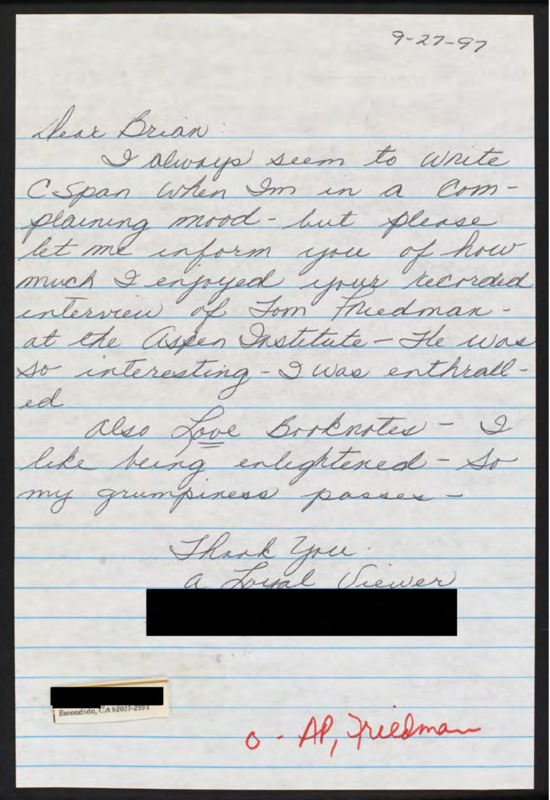 9-27-97
Dear Brian
I always seem to write
C-Span when Im in a com-
plaining mood - but please
let me inform you of how
much I enjoyed your recorded
interview of Tom Friedman -
at the Aspen Institute - He was
so interesting - I was enthrall-
ed
also Love Booknotes - I
like being enlightened - So
my grumpiness passes -
Thank You.
a Loyal Viewer
Escondido, CA 92027-2994
o - AP, Friedman